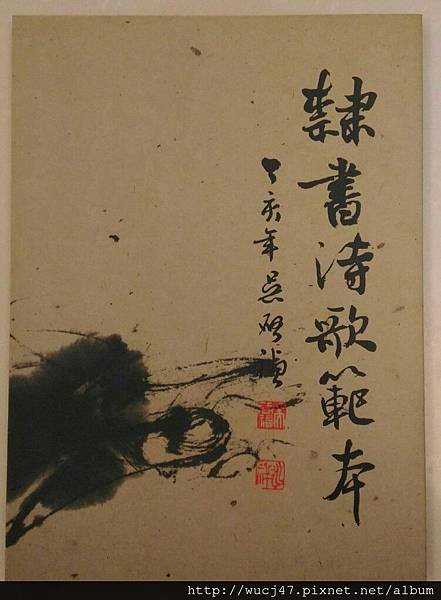 隸書詩歌範本
丁亥年吳啟禎
http://wucj47.pixnet.net/album